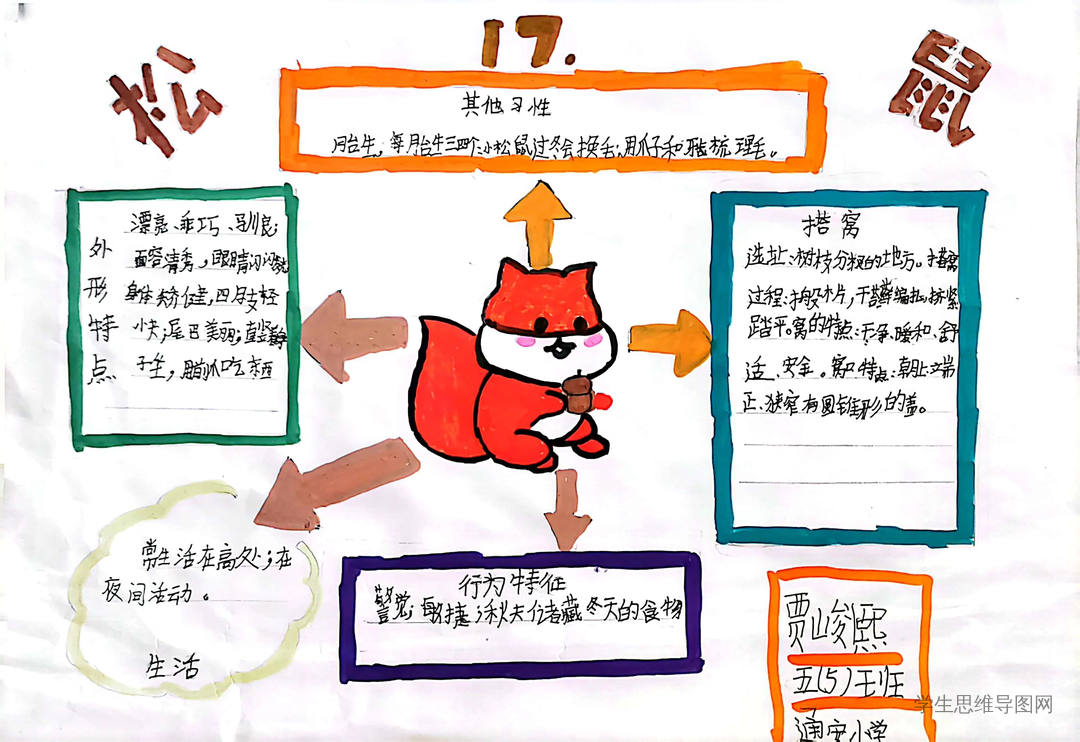 松
17.
鼠
其他习性
胎生,每胎生三四个;小松鼠过冬会换毛;用爪子和牙齿梳理毛。
外形特点
漂亮、乖巧、驯良;
面容清秀,眼睛闪闪
身体矫健,四肢轻
快;尾巴美丽;直竖着
子坐,
搭窝
选址:树枝分杈的地方。搭窝
过程:搬木片,干苔藓编扎,挤紧
踏平。窝的特点:干净、暖和、舒
适、安全。窝口特点:朝上、端
正、狭窄有圆锥形的盖。
常生活在高处;在
夜间活动。
生活
行为特征
警觉;敏捷;秋天储藏冬天的食物
贾峻熙
五(5)班
通安小学
学生思维导图网